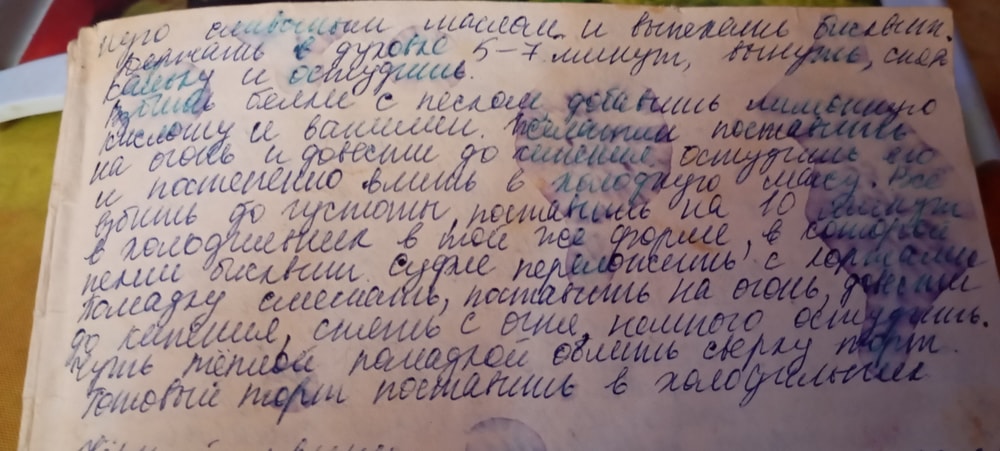 сливочным маслом и выпекать бисквит.
Держать в духовке 5–7 минут, вынуть, снять
кальку и остудить.
Взбить белки с песком добавить лимонную
кислоту и ванилин. Желатин поставить
на огонь и довести до кипения остудить его
и постепенно влить в холодную массу. Все
взбить до густоты, поставить на 10 минут
в холодильник в той же форме, в которой
пекли бисквит. Суфле переложить с коржами
Помадку смешать, поставить на огонь, довести
до кипения, снять с огня, немного остудить.
Чуть тёплой помадкой облить сверху торт.
Готовый торт поставить в холодильник